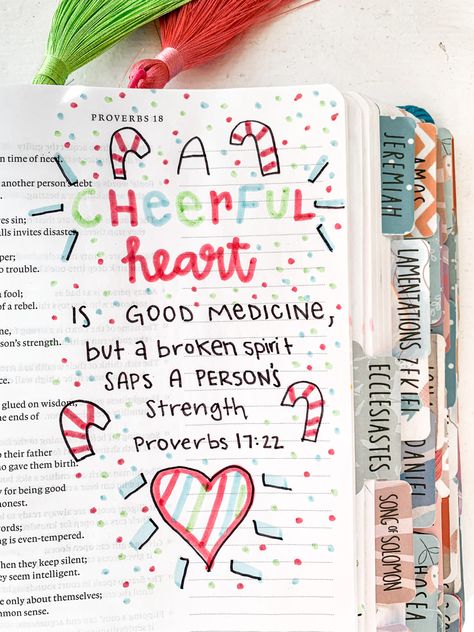 PROVERBS 18
on time of need.
another person's debt
es sin;
lls invites disaster,
per;
o trouble.
a fool;
of a rebel.
n's strength.
glued on wisdom,
he ends of
their father
o gave them birth.
y for being good
honest.
ords;
ng is even-tempered.
hen they keep silent;
seem intelligent.
e only about themselves;
mmon sense.
A
CHEERFUL
heart
IS GOOD MEDICINE,
but a broken spirit
SAPS A PERSON'S
Strength
Proverbs 17:22
JEREMIAH
AMOS
LAMENTATIONS
EZEKIEL
ECCLESIASTES
DANIEL
SONG OF SOLOMON
HOSEA